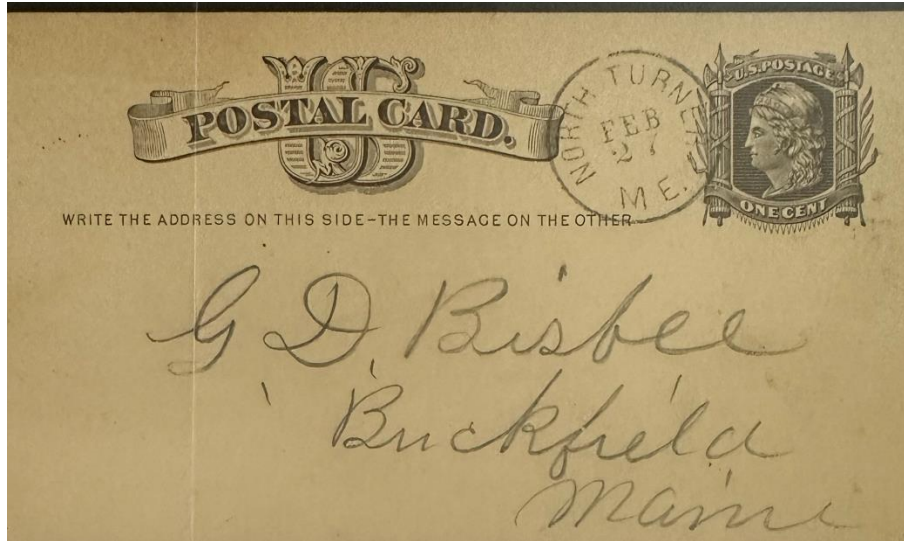 US
POSTAL CARD.
NORTH TURNER
FEB
27
ME.
U.S. POSTAGE
ONE CENT
WRITE THE ADDRESS ON THIS SIDE-THE MESSAGE ON THE OTHER
G D. Bisbee
Buckfield
Maine